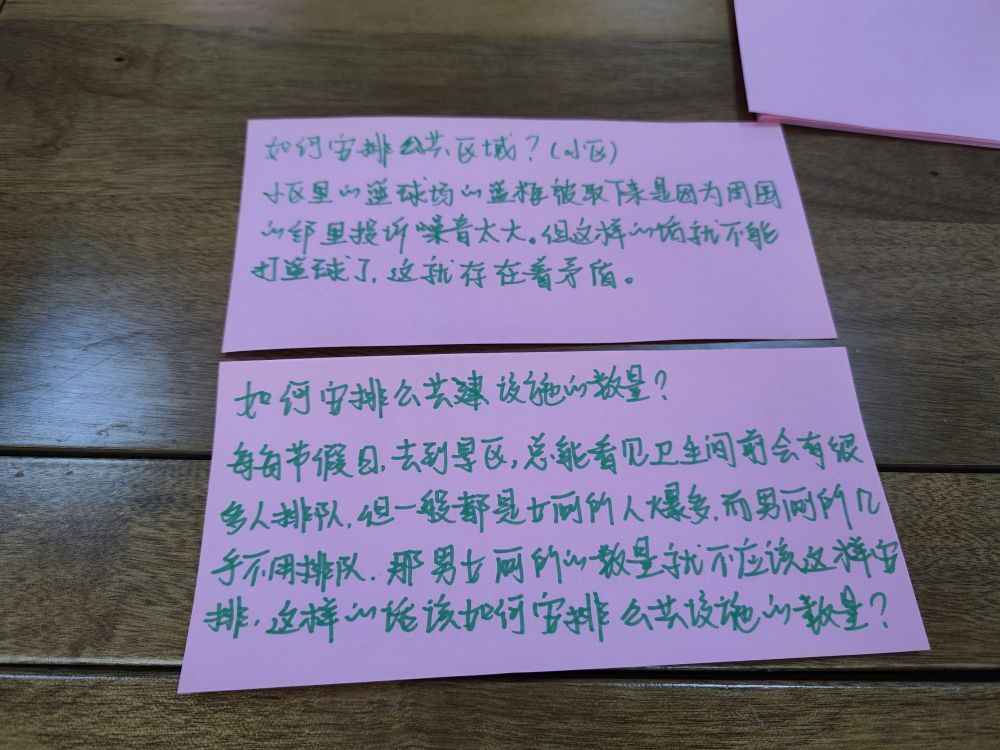 如何安排公共区域？（小区）
小区里的篮球场的篮框被取下来是因为周围
的邻里投诉噪音太大。但这样的话就不能
打篮球了，这就存在着矛盾。
如何安排公共建设施的数量？
每每节假日，去到景区，总能看见卫生间前会有很
多人排队，但一般都是女厕所人爆多，而男厕所几
乎不用排队，那男女厕所的数量就不应该这样安
排，这样的话该如何安排公共设施的数量？